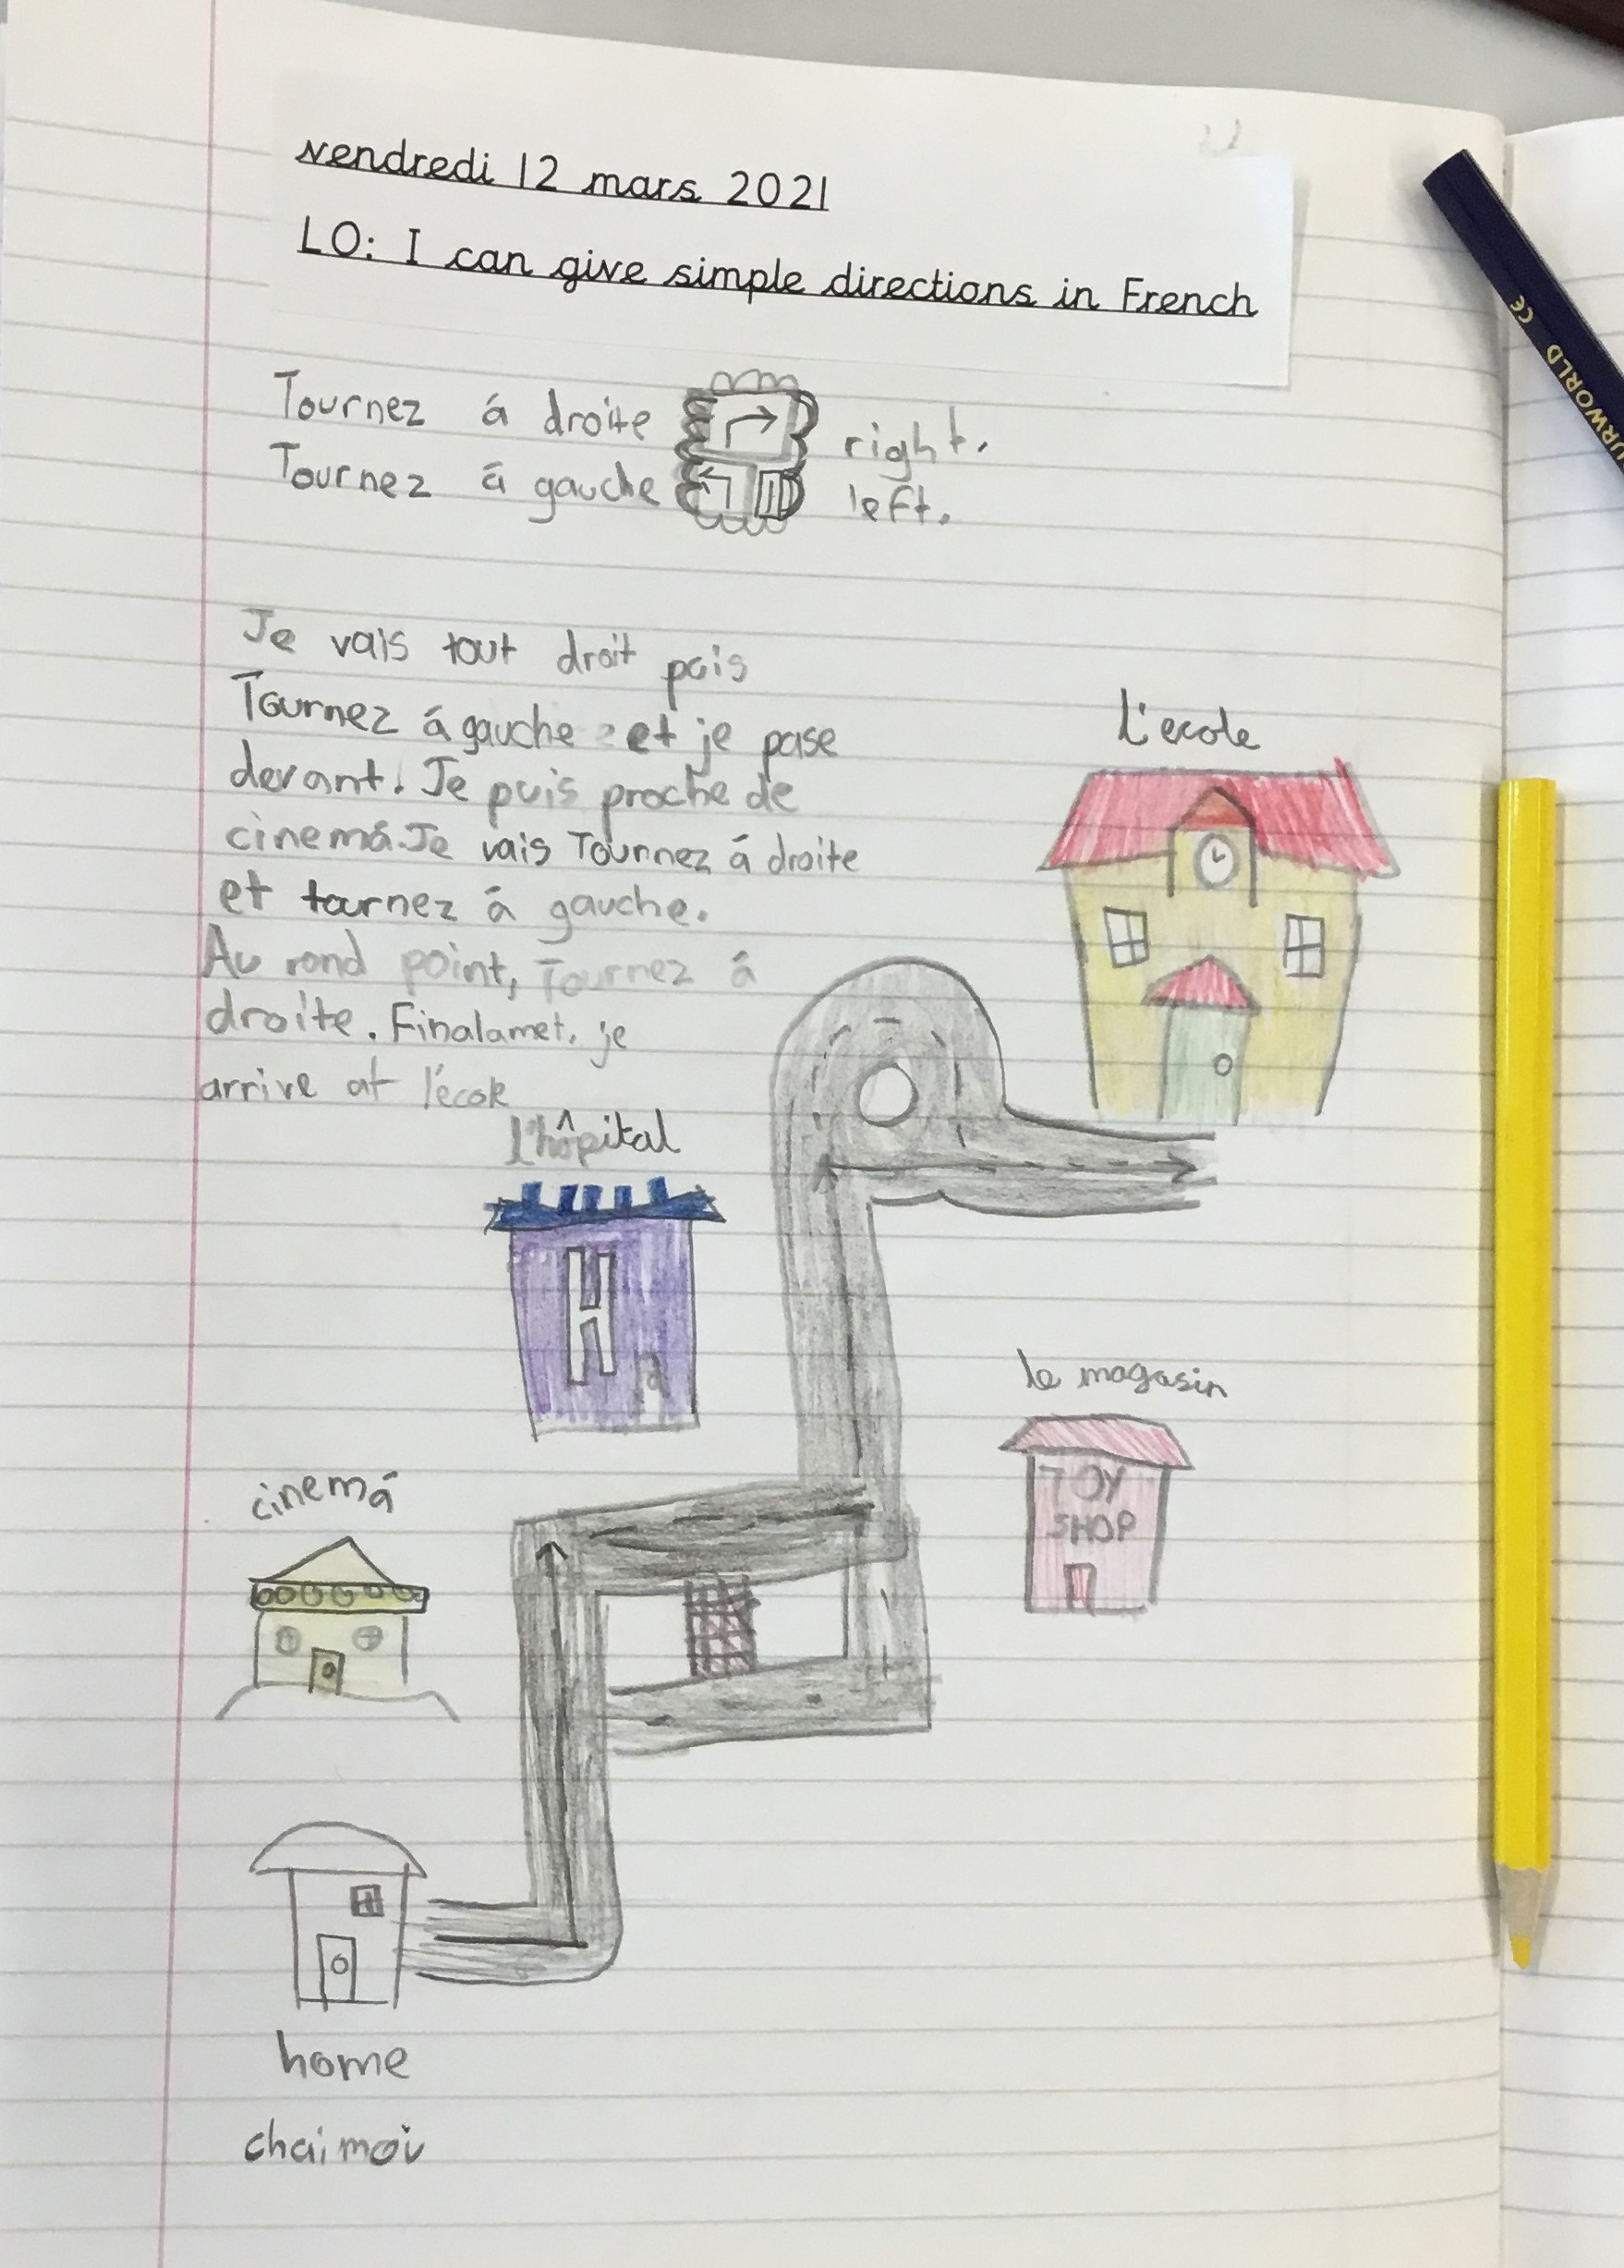 vendredi 12 mars 2021
LO: I can give simple directions in French
Tournez á droite right.
Tournez á gauche left.
Je vais tout droit puis
Tournez á gauche et je pase
devant. Je puis proche de
cinemá. Je vais Tournez á droite
et tournez á gauche.
Au rond point, Tournez á
droite. Finalamet, je
arrive at l'école
L'ecole
l'hôpital
H
le magasin
TOY
SHOP
cinemá
home
chaimoi
CE
URWORLD